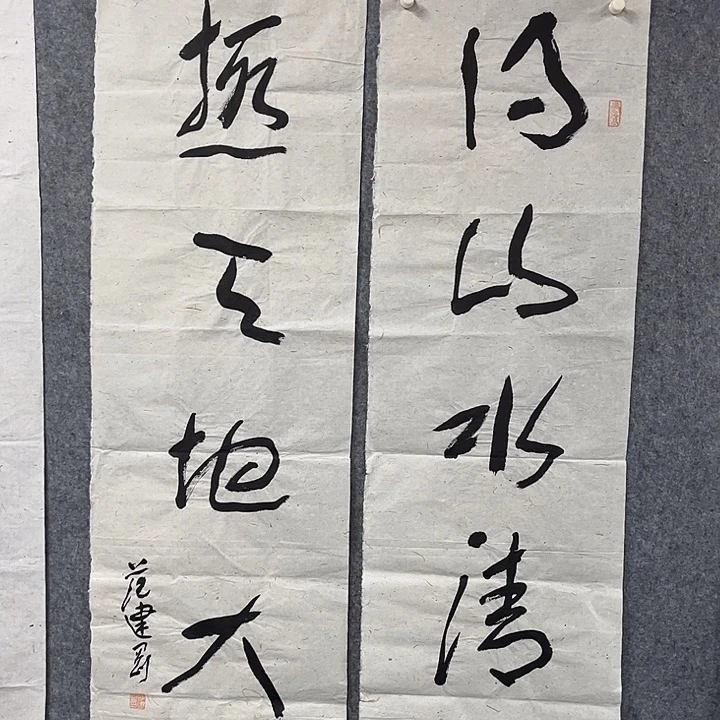 得山水清
極天地大
范建